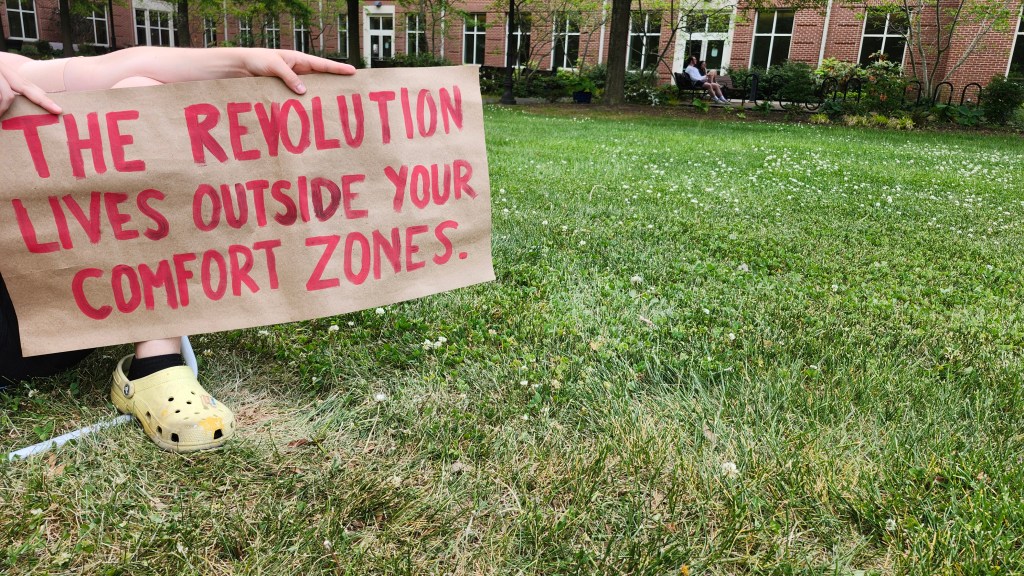 THE REVOLUTION
LIVES OUTSIDE YOUR
COMFORT ZONES.